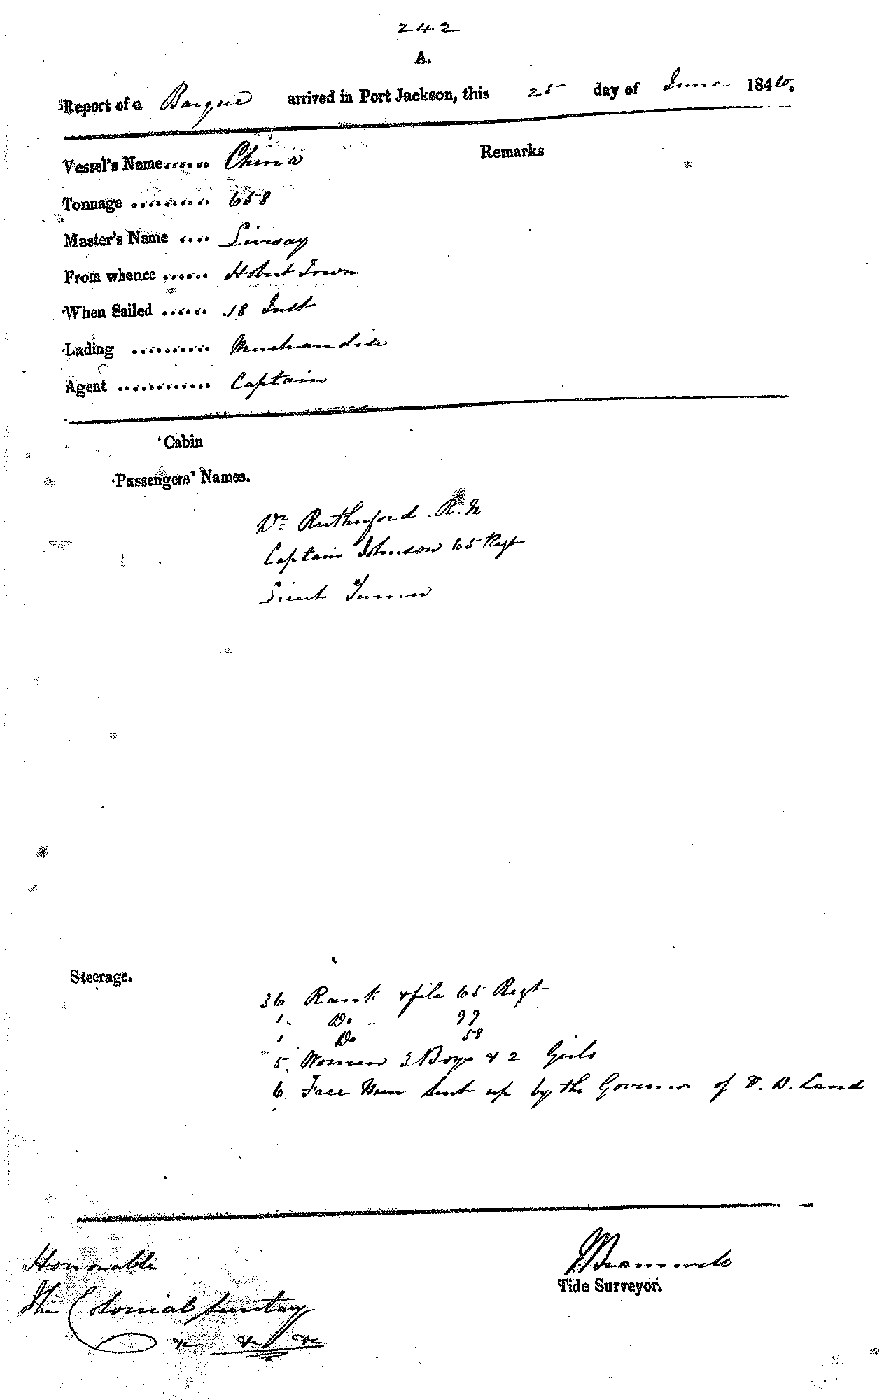 242
A.
Report of a Barque arrived in Port Jackson, this 25 day of June 1846.
Remarks
Vessel's Name...... China
Tonnage .......... 658
Master's Name .... Livesay
From whence ...... Hobart Town
When Sailed ...... 18 Inst
Lading .......... Merchandise
Agent ............ Captain
Cabin
Passengers' Names.
Dr Rutherford R.N
Captain Johnson 65 Regt
Lieut Turner
Steerage.
36 Rank & file 65 Regt
1 Do 99
1 Do 58
5 Women 3 Boys & 2 Girls
6 Free Men sent up by the Governor of V. D. Land
Tide Surveyor.
Honorable
The Colonial Secretary
&c &c &c